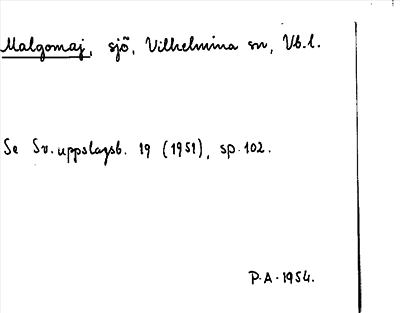 Malgomaj, sjö, Vilhelmina sn, Vb.l.
Se Sv. uppslagsb. 19 (1951), sp. 102.
P.A. 1954.